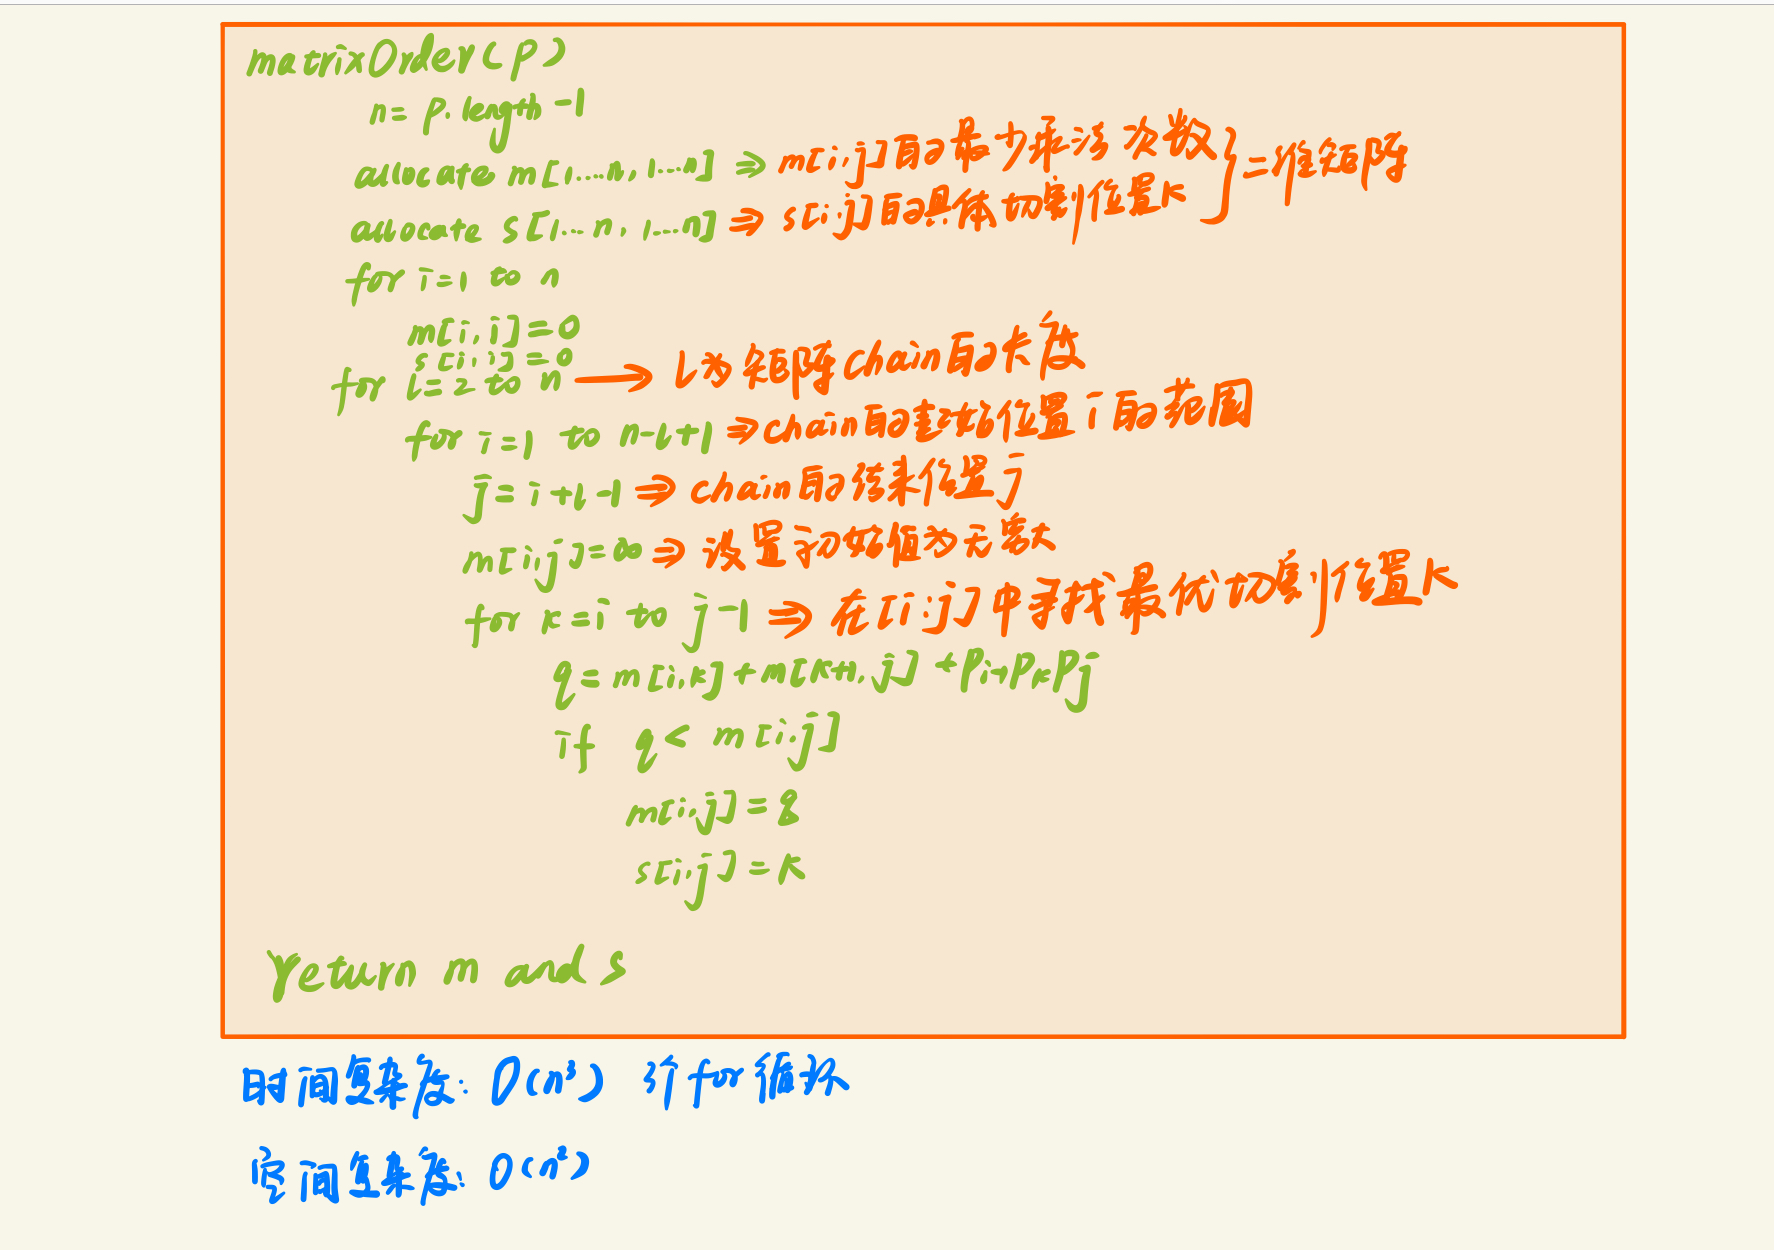 matrixOrder(p)
n= p.length -1
allocate m[1....n, 1....n] ⇒ m[i,j]的最少乘法次数 } 二维矩阵
allocate s[1...n, 1...n] ⇒ s[i,j]的具体切割位置k
for i=1 to n
m[i,i]=0
s[i,i]=0
for l=2 to n → l为矩阵chain的长度
for i=1 to n-l+1 ⇒ chain的起始位置i的范围
j=i+l-1 ⇒ chain的结束位置j
m[i,j]=∞ ⇒ 设置初始值为无穷大
for k=i to j-1 ⇒ 在[i:j]中寻找最优切割位置k
q= m[i,k]+m[k+1,j] +Pi-1PkPj
if q< m[i,j]
m[i,j]=q
s[i,j]=k
return m and s
时间复杂度: O(n³) 3个for循环
空间复杂度: O(n²)